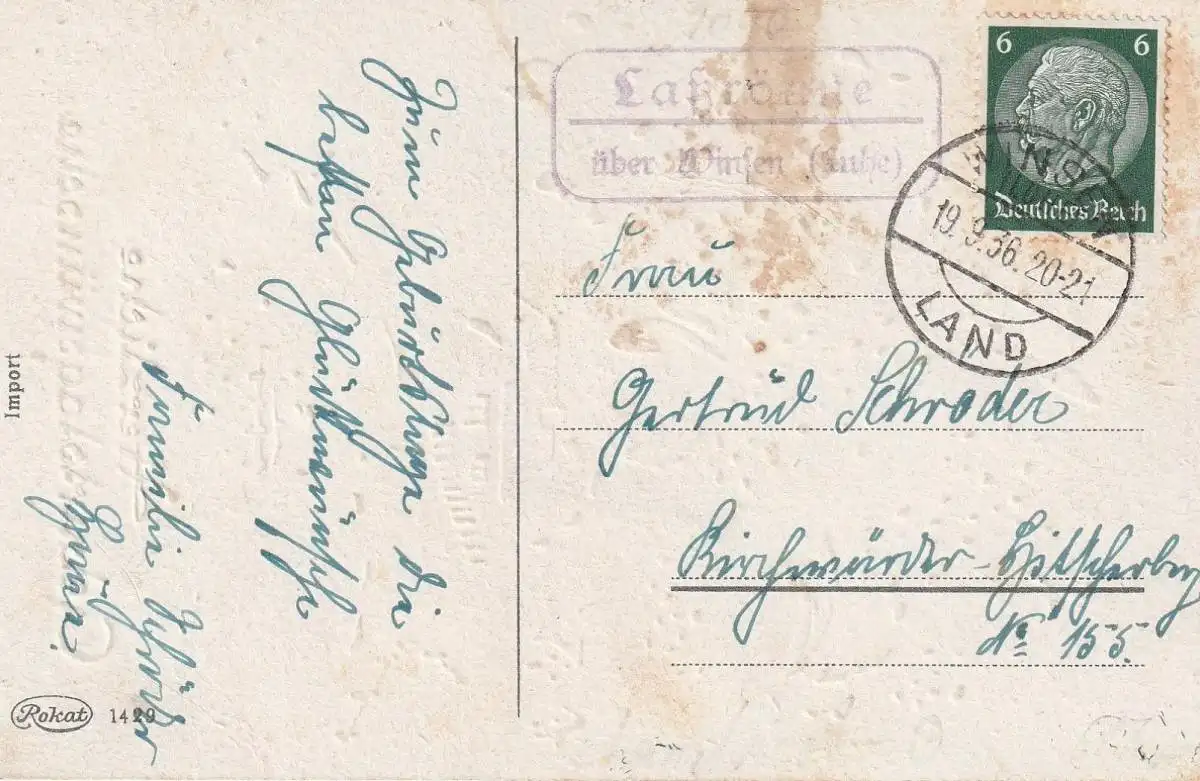 Zum Geburtstage die
besten Glückwünsche
Familie Schröder
Import
Rokat 1429
Laßrönne
über Winsen (Luhe)
6 6
Deutsches Reich
WINSEN
19.9.36.20-21
LAND
Frau
Gertrud Schröder
Kirchwärder-Hitscherberg
No 155.